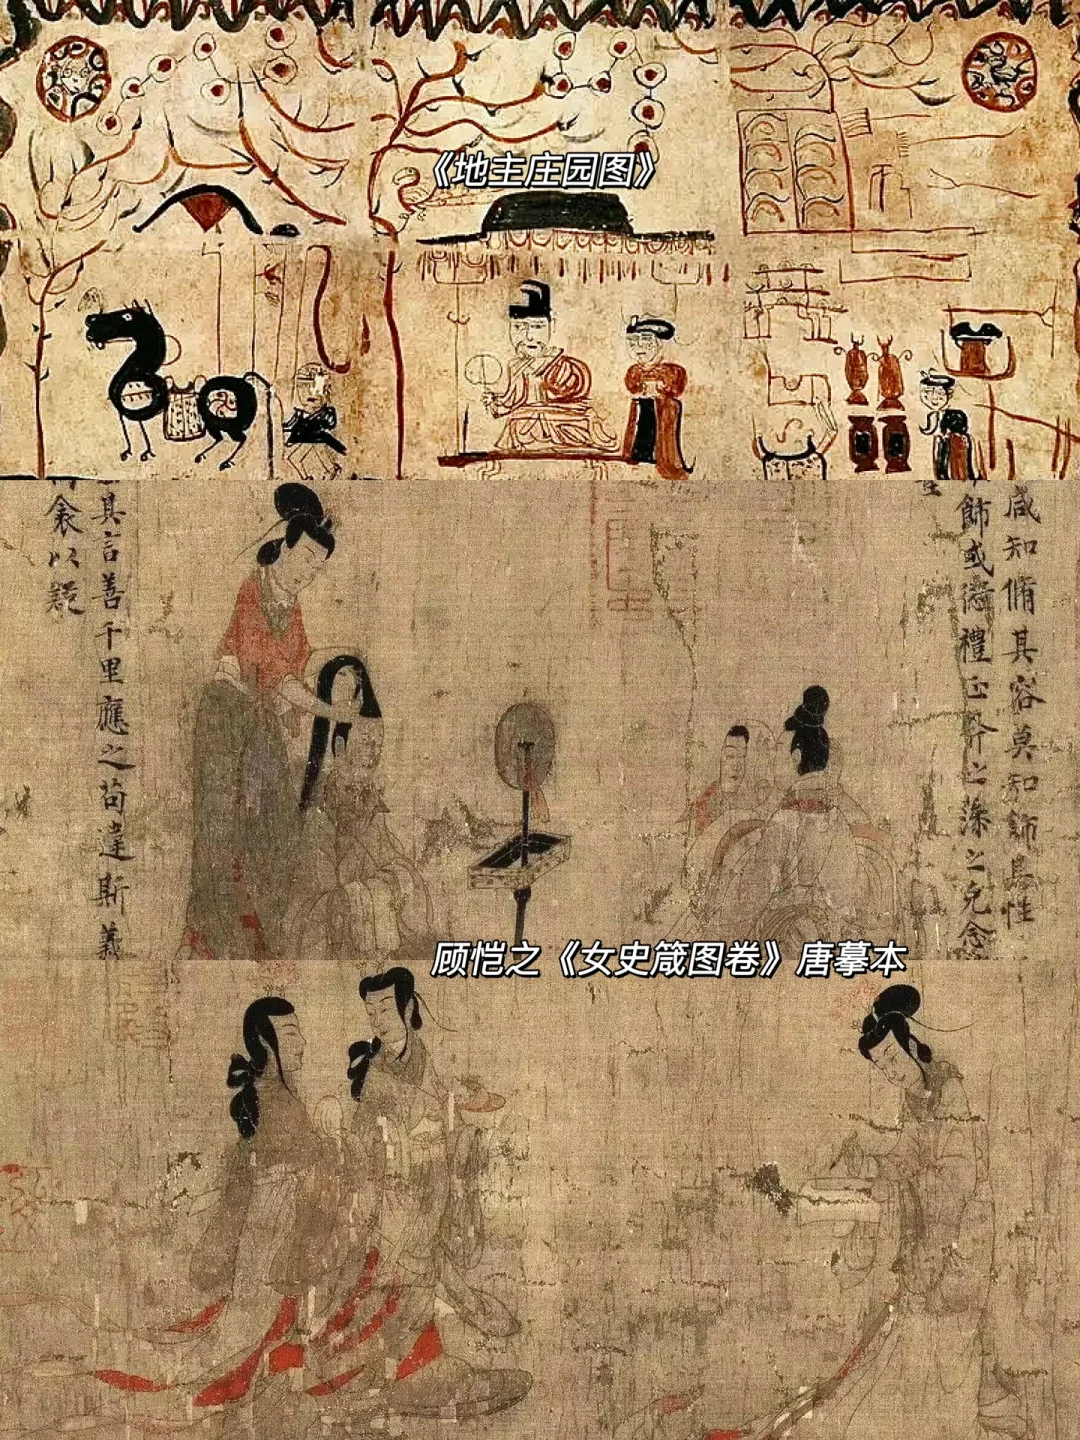 《地主庄园图》
咸知脩其容莫知飾其性
飾或愆禮正斧之藻之克念
其言善千里應之苟違斯義
衾以疑
顾恺之《女史箴图卷》唐摹本